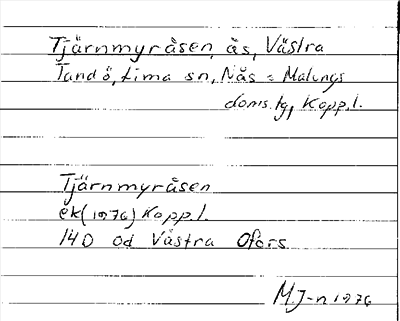 Tjärnmyråsen, ås, Västra
Tandö, Lima sn, Nås = Malungs
doms.lg, Kopp.l.
Tjärnmyråsen
ek(1976) Kopp.l.
14D od Västra Ofors
MJ-n 1976